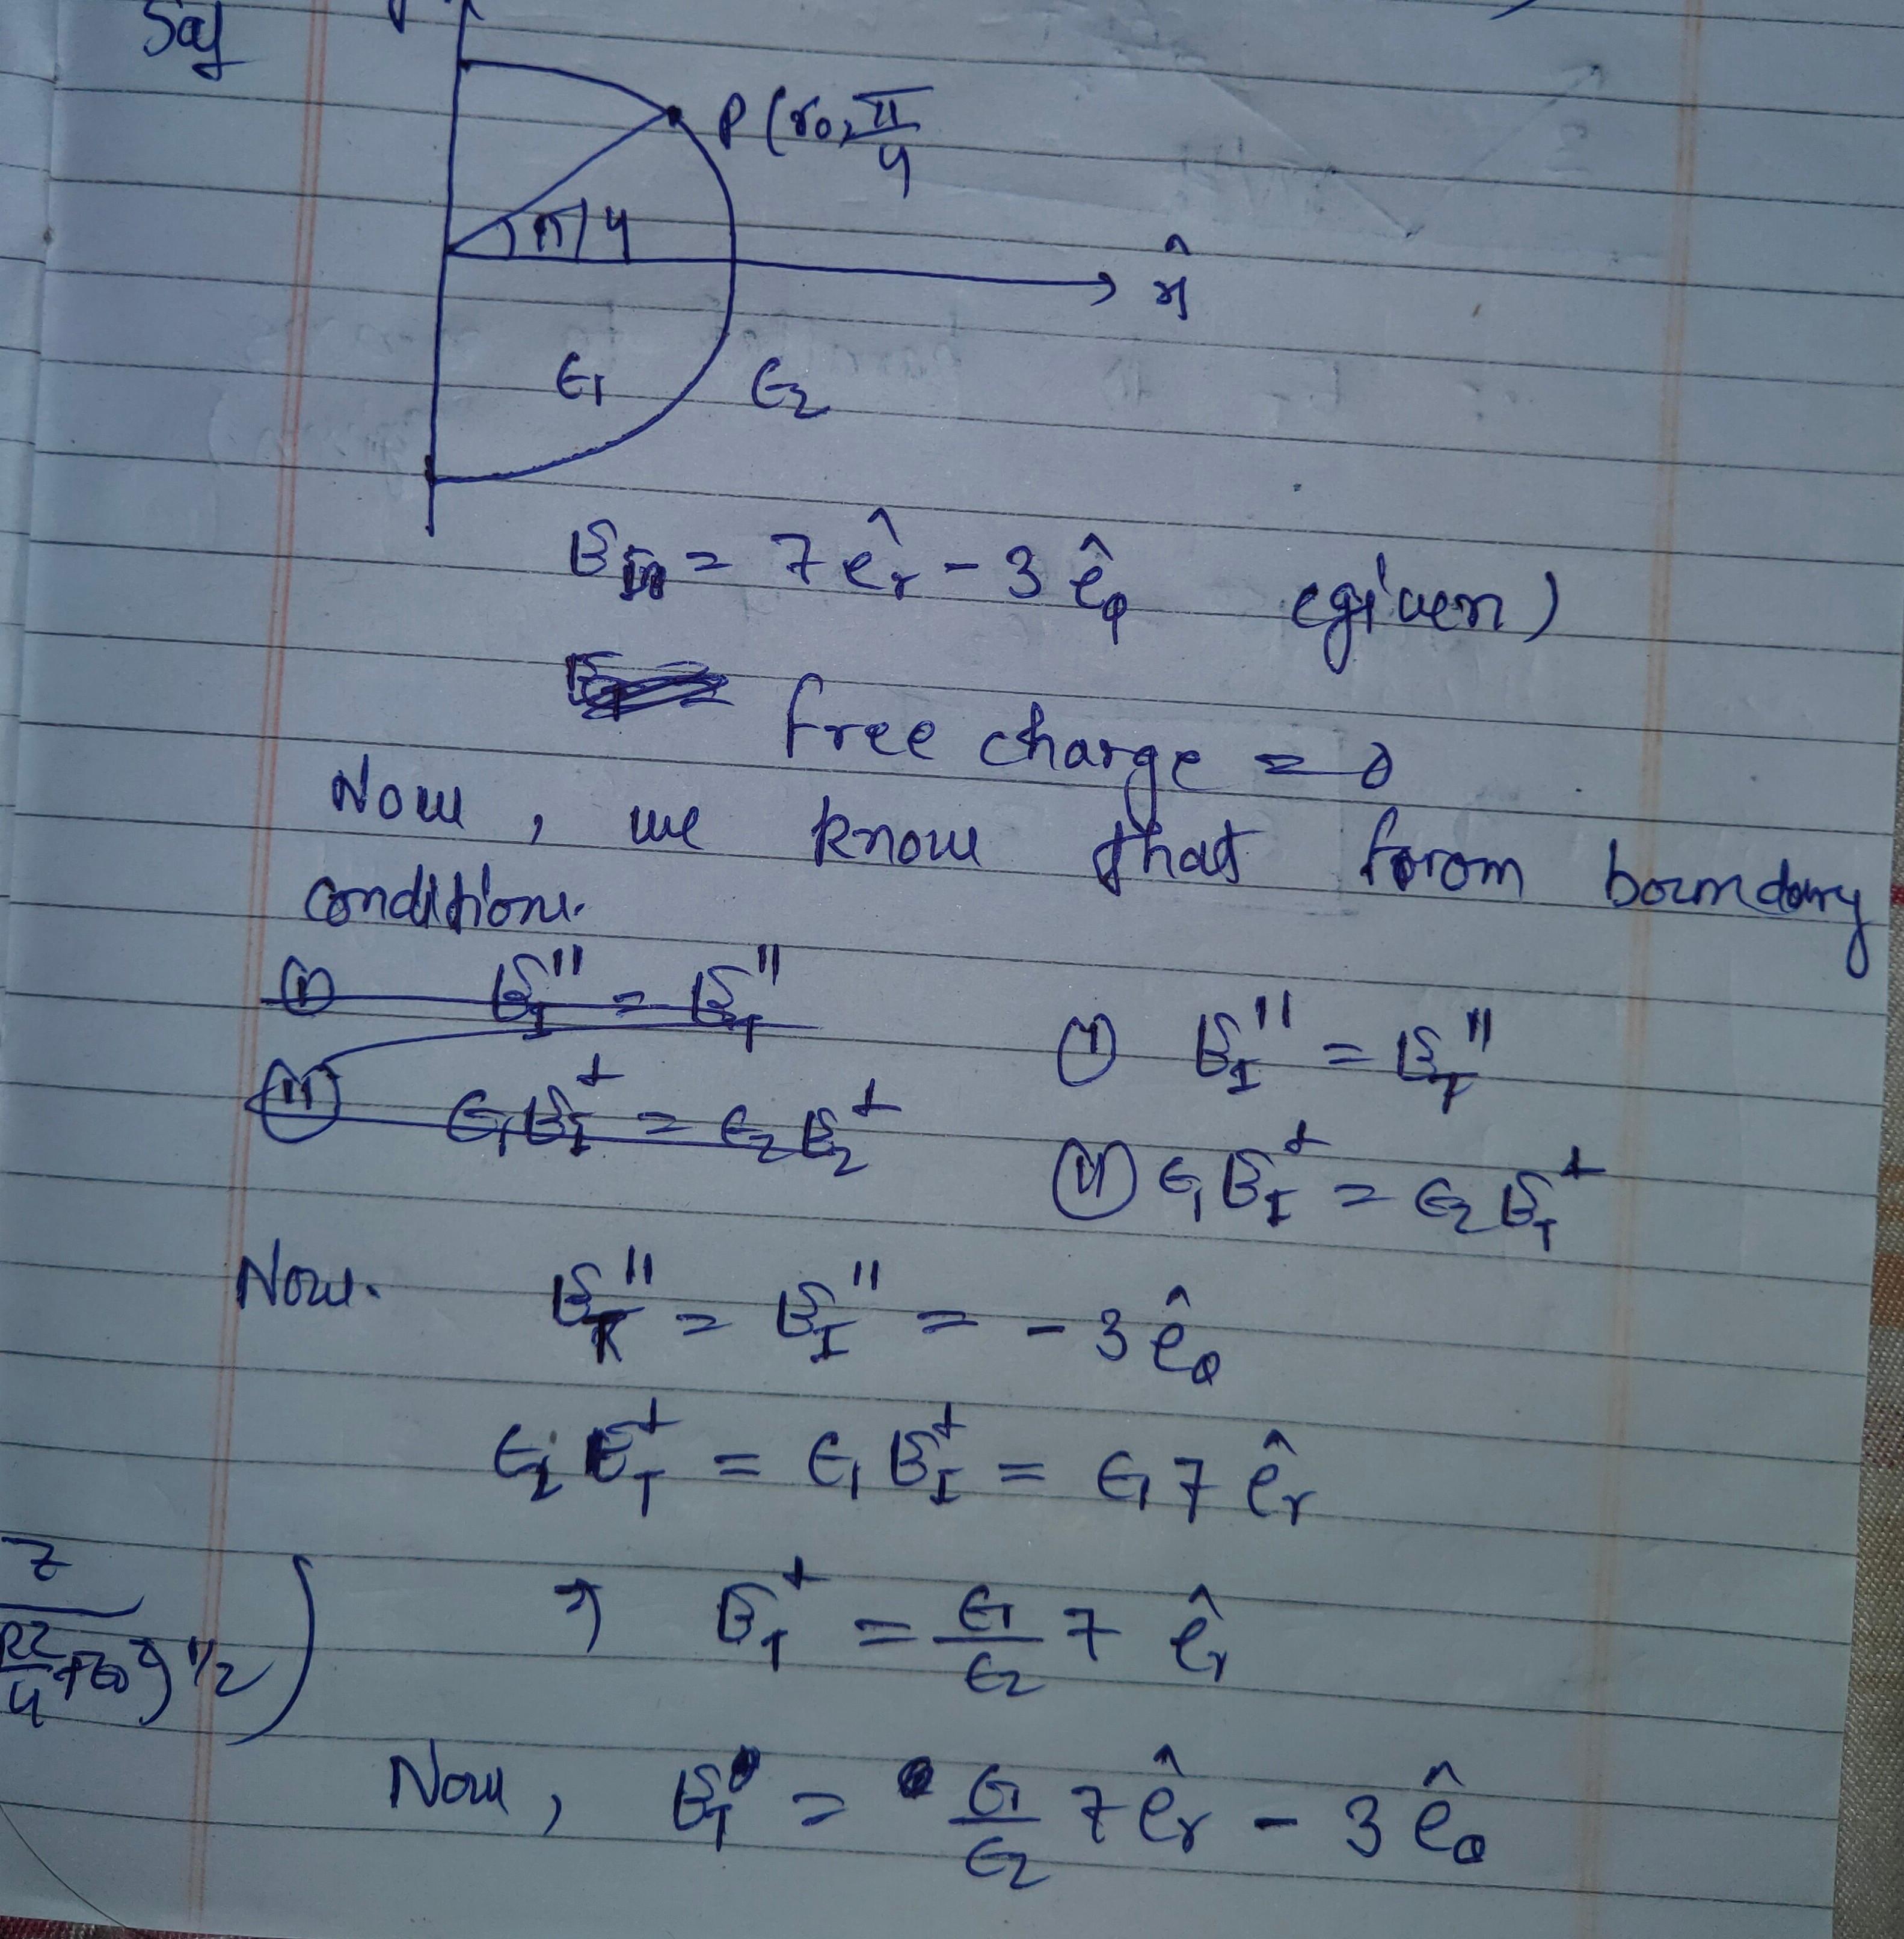 Sol
P(r₀, π/4
π/4
x̂
ϵ₁ ϵ₂
E_In = 7 ê_r - 3 ê_φ (given)
free charge = 0
Now, we know that from boundary
conditions.
(I) E_I'' = E_T''
(II) ϵ₁E_I^⊥ = ϵ₂E_2^⊥
(I) E_I'' = E_T''
(II) ϵ₁E_I^⊥ = ϵ₂E_T^⊥
Now. E_T'' = E_I'' = -3 ê_φ
ϵ₂ E_T^⊥ = ϵ₁ E_I^⊥ = ϵ₁ 7 ê_r
⇒ E_T^⊥ = ϵ₁/ϵ₂ 7 ê_r
Now, E_T = ϵ₁/ϵ₂ 7 ê_r - 3 ê_φ